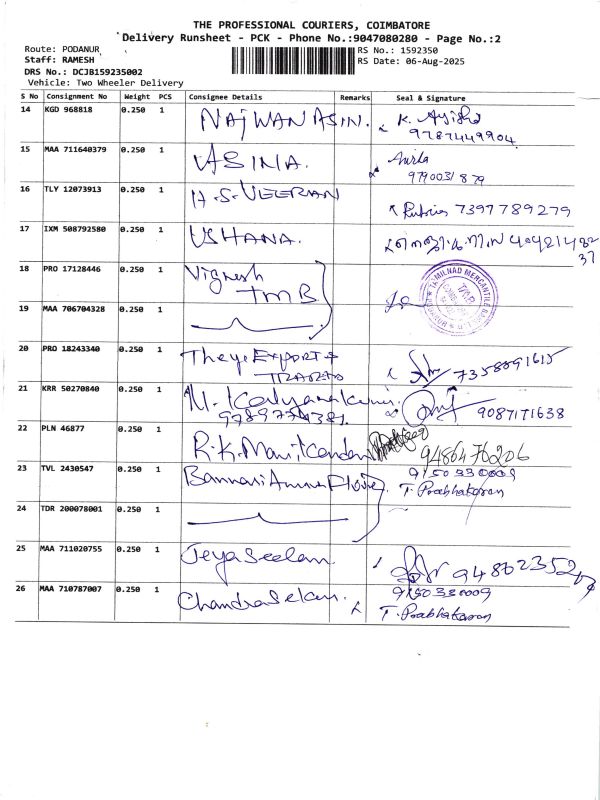 THE PROFESSIONAL COURIERS, COIMBATORE
Delivery Runsheet - PCK - Phone No.:9047080280 - Page No.:2
Route: PODANUR
RS No.: 1592350
Staff: RAMESH
RS Date: 06-Aug-2025
DRS No.: DCJB159235002
Vehicle: Two Wheeler Delivery
S No Consignment No Weight PCS Consignee Details Remarks Seal & Signature
14 KGD 968818 0.250 1 NAJWAN ASIN. K. Ayisha
9787449904
15 MAA 711640379 0.250 1 ASINA.
9790031879
16 TLY 12073913 0.250 1 H.S. VEERAN 7397789279
17 IXM 508792580 0.250 1 USHANA.
18 PRO 17128446 0.250 1 Vignesh
TMB
TAMILNAD MERCANTILE
19 MAA 706704328 0.250 1
20 PRO 18243340 0.250 1 EXPORT &
7358891615
21 KRR 50270840 0.250 1 N. Kalyanakumar
9789774381. 9087171638
22 PLN 46877 0.250 1 R.K. Manikandan 9486476206
23 TVL 2430547 0.250 1 Bannari Amman 9150330009
T. Prabhakaran
24 TDR 200078001 0.250 1
25 MAA 711020755 0.250 1 Jeyaseelan
26 MAA 710787007 0.250 1 Chandrasekar. 9150330009
T. Prabhakaran